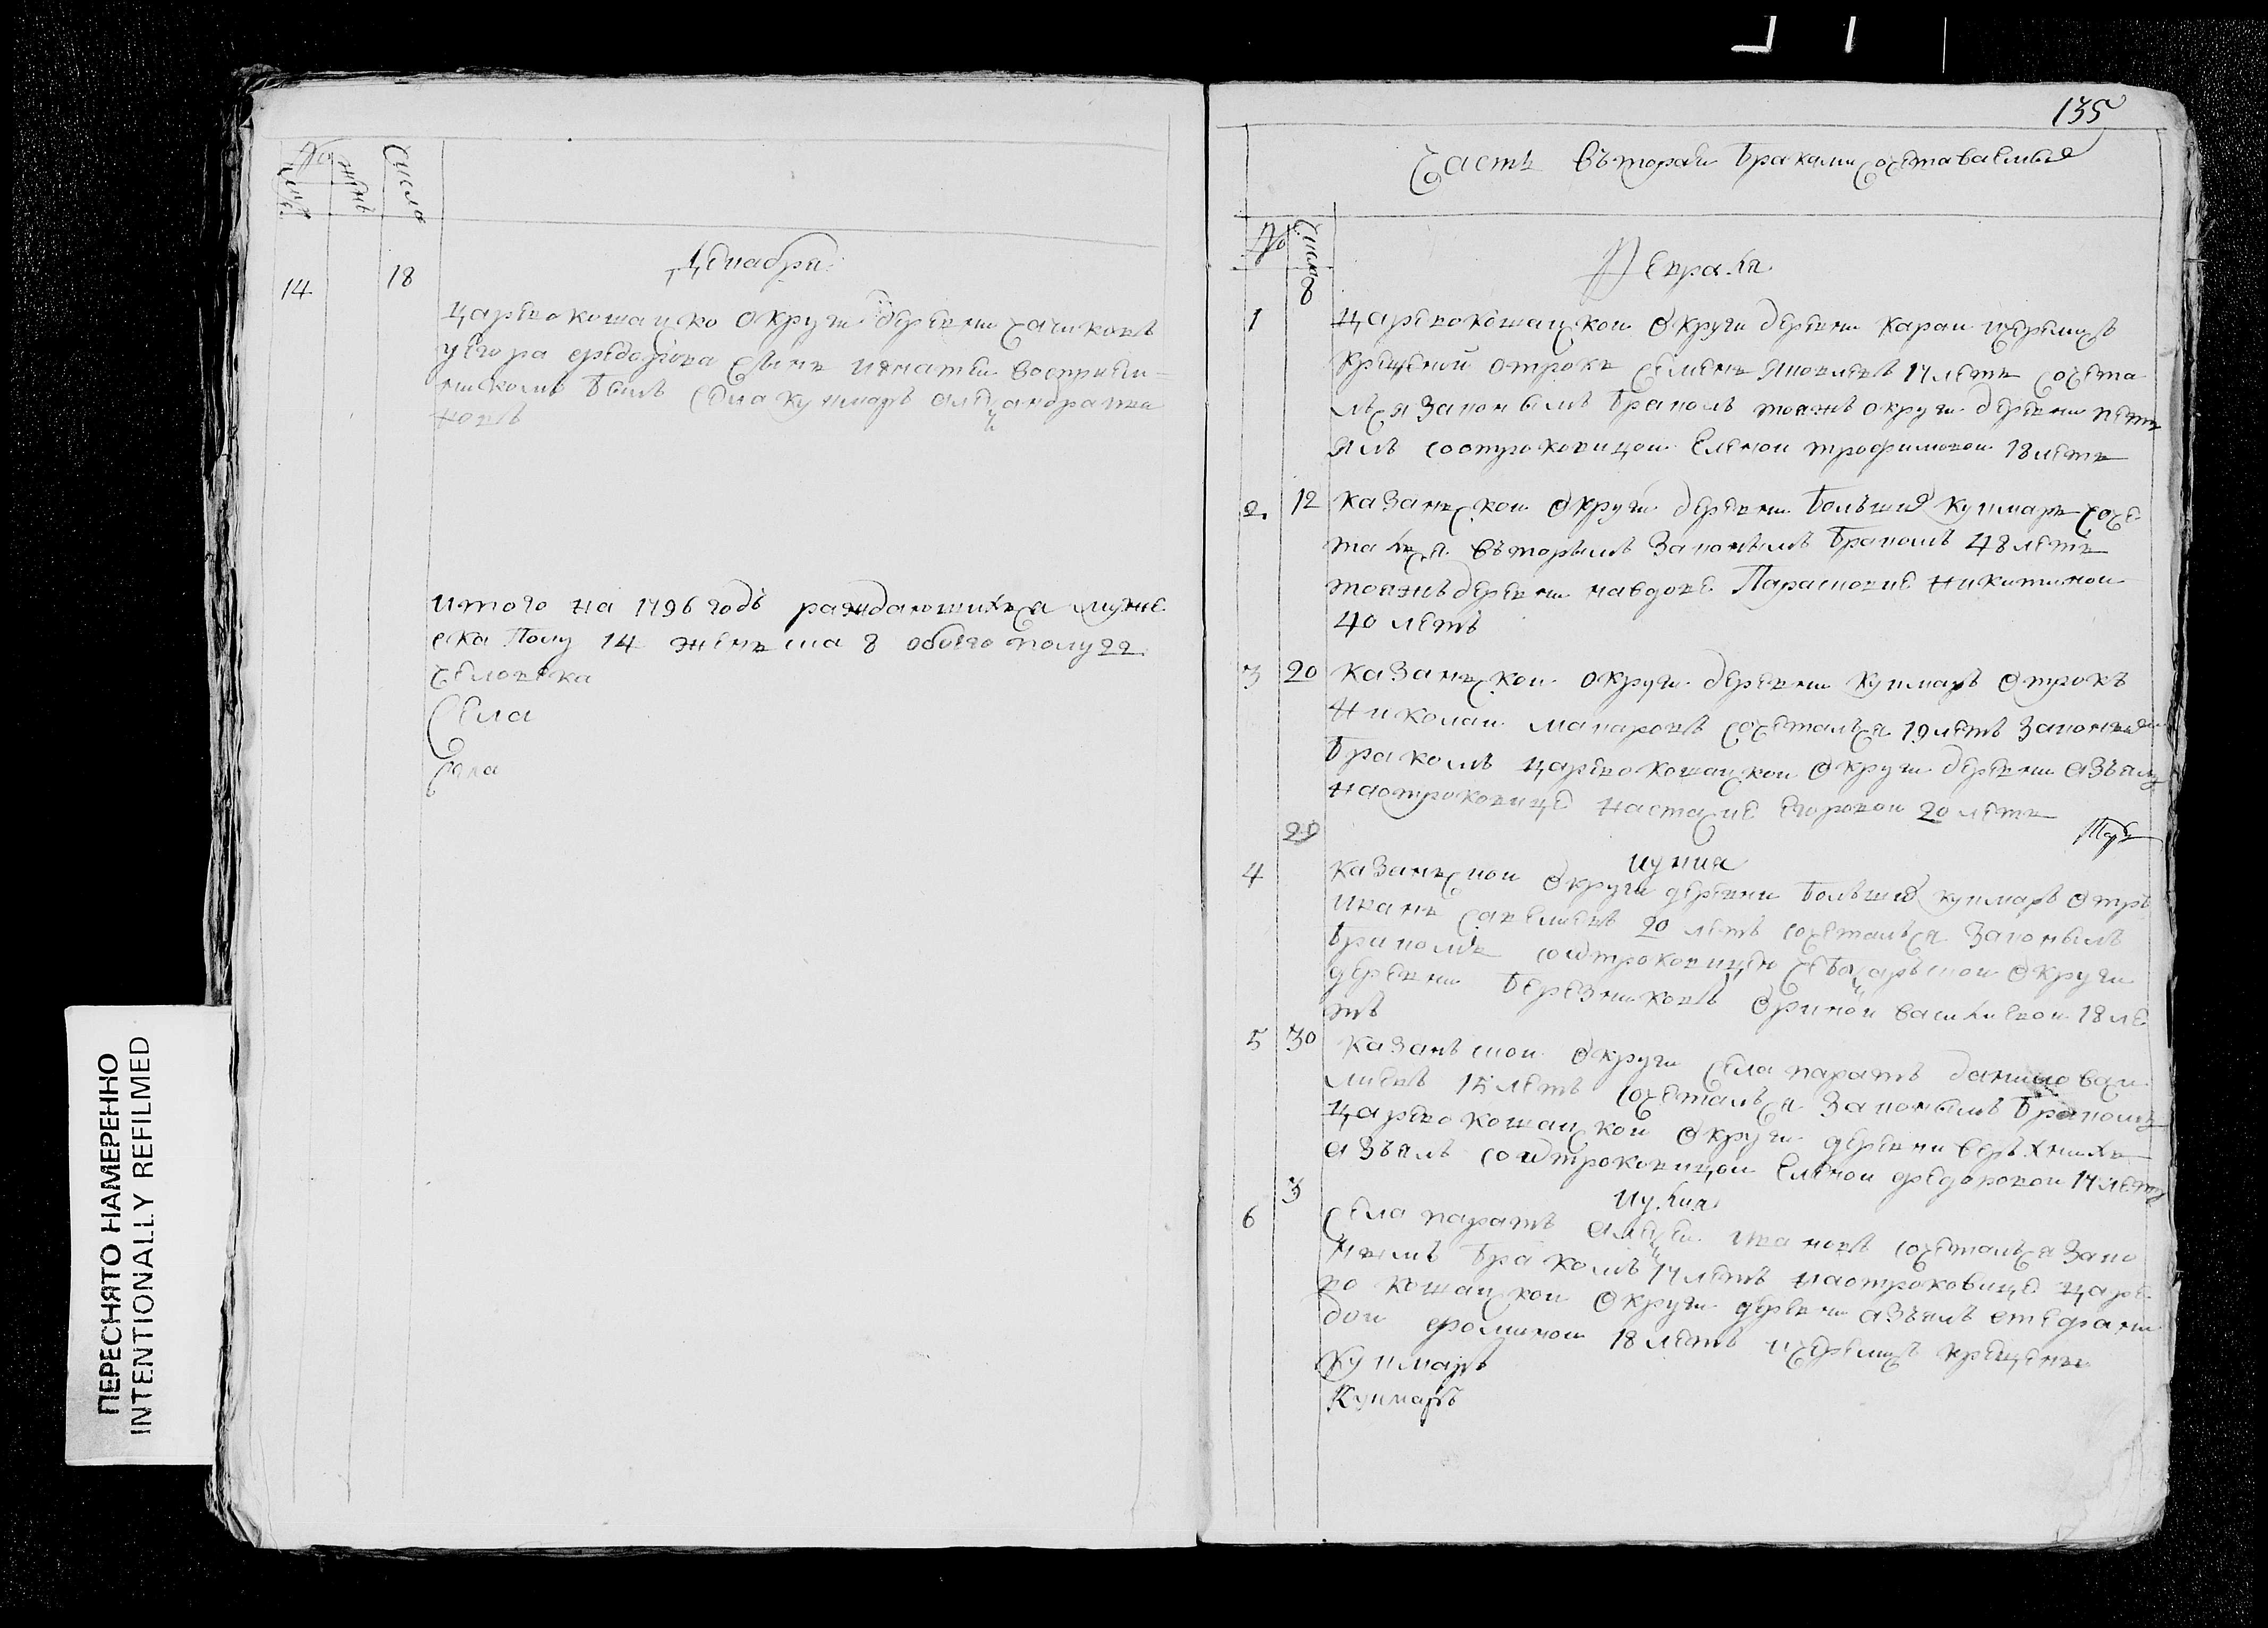 №
муж
жен
числа
Декабря
14 18
царевококшайско округи деревни
сынъ игнатей восприем-
никомъ былъ села куимаръ александра ива
новъ
итого на 1796 годъ раждающихся муже
ска полу 14 женска 8 обоего полу 22
человека
Села
Села
135
Часть вьторая браками сочетаваемые
№
числа
Февраля
1 8 царевококшайскои округи деревни караи ичеремисъ
крещеной отрокъ семенъ яковлевъ 17 летъ сочета
лся законымъ бракомъ тояжъ округи деревни
ялъ соотроковицои еленои трофимовои 18 летъ
2. 12 казанскои округи деревни болъшие куимаръ соче
тался въторымъ законымъ бракомъ 48 летъ
тояжъ деревни навдове Парасковие никитинои
40 летъ
3 20 казанскои округи деревни куимаръ отрокъ
николаи макаровъ сочетался 19 летъ законым
бракомъ царевококшайскои округи деревни азъялъ
наотроковице настасие егоровои 20 летъ
29
иуния
4 казанскои округи деревни болъшие куимаръ отръ
иванъ савелиевъ 20 летъ сочетался законымъ
бракомъ соотроковицею чебоксарьскои округи
деревни березниковъ ориной василиевои 18 ле
тъ
5 30 казанъскои округи села паратъ данило васи
лиевъ 15 летъ сочетался законымъ бракомъ
царевококшайскои округи деревни верхнихъ
азъялъ соотроковицои еленои федоровои 17 летъ
иулия
3
6 села паратъ алексеи ивановъ сочетался зако
нымъ бракомъ 17 летъ наотроковице царе
вококшайскои округи деревни азъялъ стефани
дои фоминои 18 летъ ичеремисъ крещены
Куимаръ
Куимаръ
ПЕРЕСНЯТО НАМЕРЕННО
INTENTIONALLY REFILMED